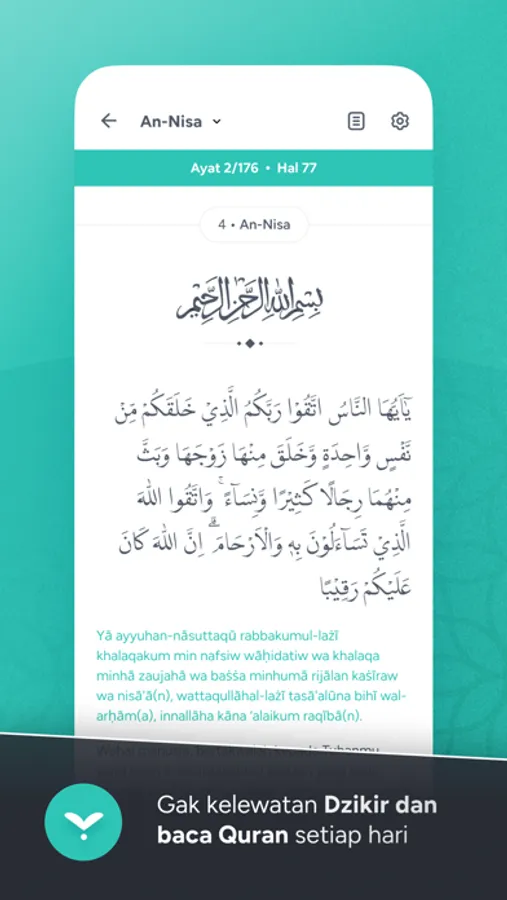 An-Nisa
Ayat 2/176 • Hal 77
4 • An-Nisa
بِسْمِ اللهِ الرَّحْمٰنِ الرَّحِيْمِ
يٰٓاَيُّهَا النَّاسُ اتَّقُوْا رَبَّكُمُ الَّذِيْ خَلَقَكُمْ مِّنْ
نَّفْسٍ وَّاحِدَةٍ وَّخَلَقَ مِنْهَا زَوْجَهَا وَبَثَّ
مِنْهُمَا رِجَالًا كَثِيْرًا وَّنِسَاۤءً ۚ وَاتَّقُوا اللّٰهَ
الَّذِيْ تَسَاۤءَلُوْنَ بِهٖ وَالْاَرْحَامَ ۗ اِنَّ اللّٰهَ كَانَ
عَلَيْكُمْ رَقِيْبًا
Yā ayyuhan-nāsuttaqū rabbakumul-lażī
khalaqakum min nafsiw wāḥidatiw wa khalaqa
minhā zaujahā wa baṡṡa minhumā rijālan kaṡīraw
wa nisā'ā(n), wattaqullāhal-lażī tasā'alūna bihī wal-
arḥām(a), innallāha kāna ‘alaikum raqībā(n).
Tuhanmu
Gak kelewatan Dzikir dan
baca Quran setiap hari